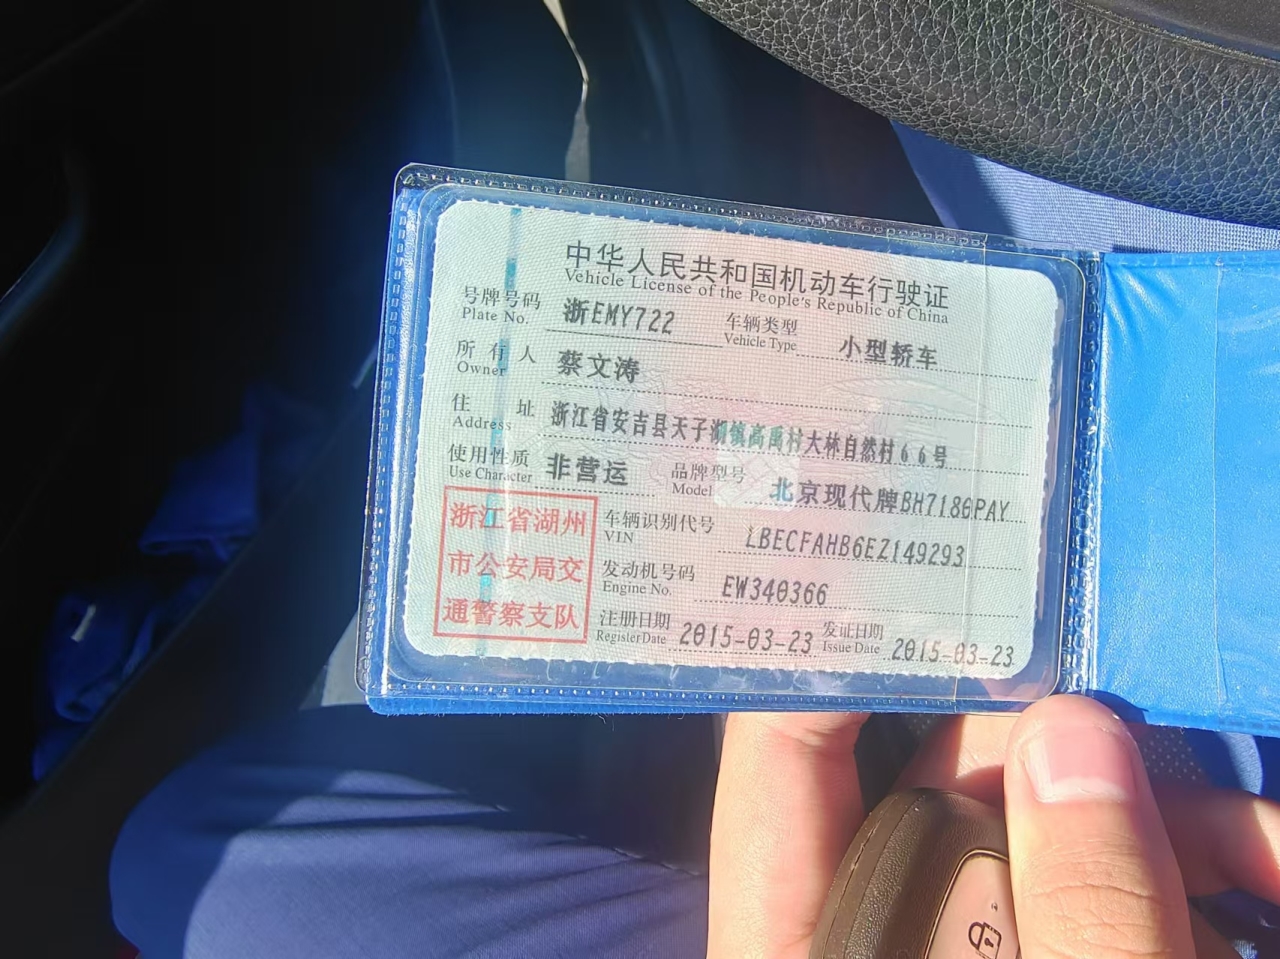 中华人民共和国机动车行驶证
Vehicle License of the People's Republic of China
号牌号码 浙EMY722 车辆类型 小型轿车
Plate No. Vehicle Type
所有人 蔡文涛
Owner
住址 浙江省安吉县天子湖镇高禹村大林自然村66号
Address
使用性质 非营运 品牌型号 北京现代牌BH7186PAY
Use Character Model
浙江省湖州
市公安局交
通警察支队
车辆识别代号 LBECFAHB6EZ149293
VIN
发动机号码 EW340366
Engine No.
注册日期 2015-03-23 发证日期 2015-03-23
Register Date Issue Date